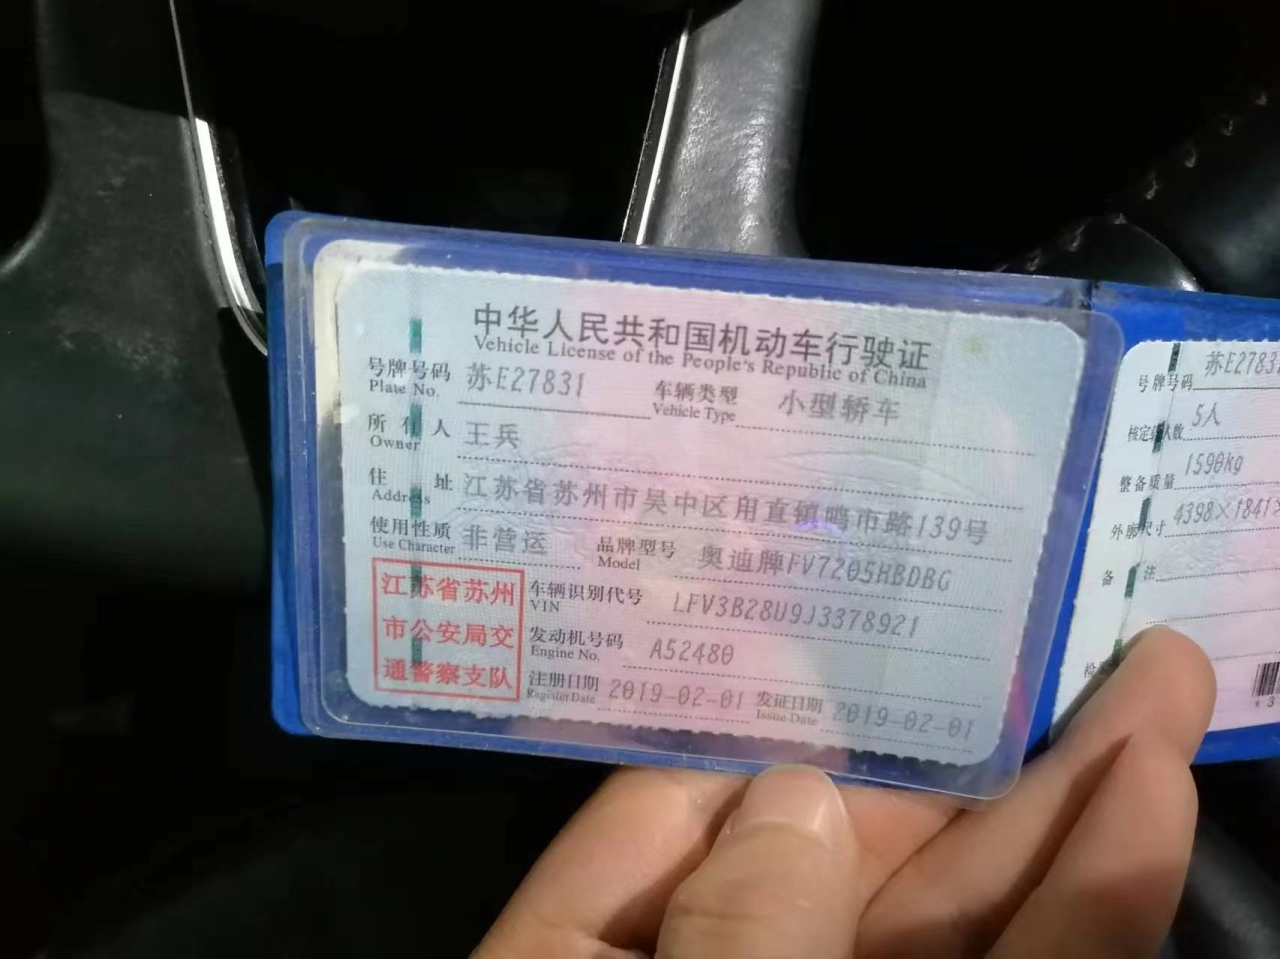 中华人民共和国机动车行驶证
Vehicle License of the People's Republic of China
号牌号码 苏E27831 车辆类型 小型轿车
Plate No. Vehicle Type
所有人 王兵
Owner
住址 江苏省苏州市吴中区甪直镇鸣市路139号
Address
使用性质 非营运 品牌型号 奥迪牌FV7205HBDBG
Use Character Model
江苏省苏州
市公安局交
通警察支队
车辆识别代号 LFV3B28U9J3378921
VIN
发动机号码 A52480
Engine No.
注册日期 2019-02-01 发证日期 2019-02-01
Register Date Issue Date
号牌号码 苏E2783
核定载人数 5人
整备质量 1590kg
外廓尺寸 4398×1841×
备注